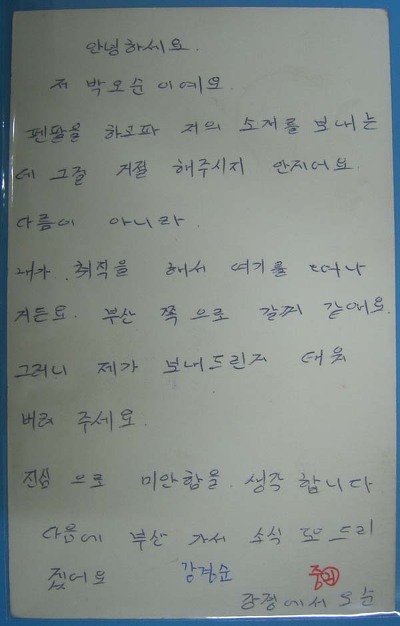 안녕하세요.
저 박오순이예요.
펜팔을 하고파 저의 소개를 보내는
데 그걸 거절 해주시지 안지어요.
다름이 아니라.
내가. 취직을 해서 여기를 떠나
거든요. 부산 쪽으로 갈꺼 같애요.
그러니 제가 보내드린거 태워
버려 주세요.
진심으로 미안함을 생각합니다
다음에 부산 가서 소식 드리
겠어요 강경순
강정에서 오순